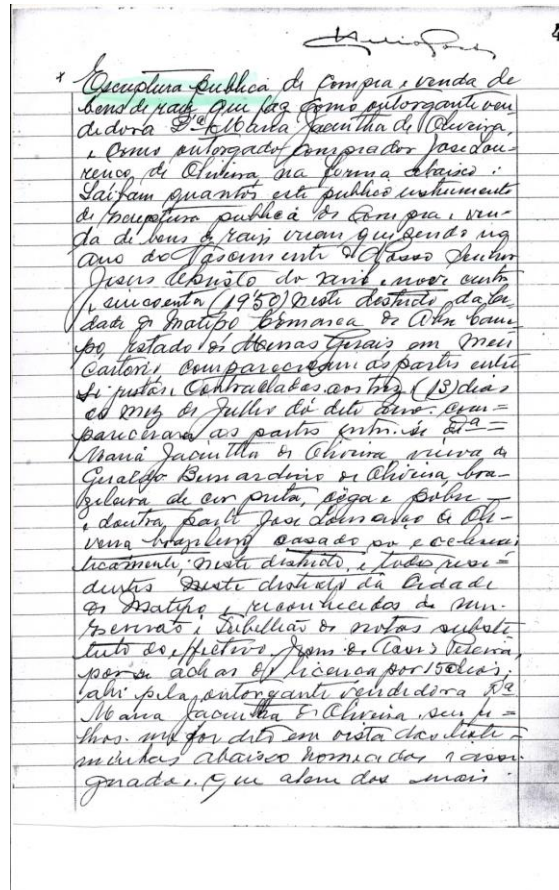 4
Escriptura publica de compra e venda de
bens de raiz que faz como outorgante ven
dedora Dª Maria Jacintha de Oliveira,
e como outorgado comprador José Lou-
renço de Oliveira, na forma abaixo:
Saibam quantos este publico instrumento
de escriptura publica de compra e ven-
da de bens de raiz virem que sendo no
anno do Nascimento de Nosso Senhor
Jesus Christo de mil e nove centos
e cincoenta (1950) neste destricto da Ci
dade de Matipó Comarca de Abre Cam-
po, estado de Minas Gerais em meu
Cartorio, compareceram as partes entre
si justas, Contractadas aos trez (13) dias
do mez de Julho do dito anno. com=
pareceram as partes entre si Dª =
Maria Jacintha de Oliveira, viuva de
Geraldo Bernardino de Oliveira, bra-
zileira de cor preta, cega e pobre -
e doutra parte José Lourenço de Oli-
veira brazileiro casado so ecclesias
ticamente, neste districto, e todos resi=
dentes neste destricto da Cidade
de Matipó e reconhecidos de mim
Escrivão e Tabellião de notas substi
tuto do effectivo de Assis Pereira
por se achar de licença por 15 dias.
ahi pela outorgante vendedôra Dª
Maria Jacintha de Oliveira seu fi=
lhos. me foi dito em vista das teste-
minhas abaixo nomeadas e assi
gnados. Que alem dos mais